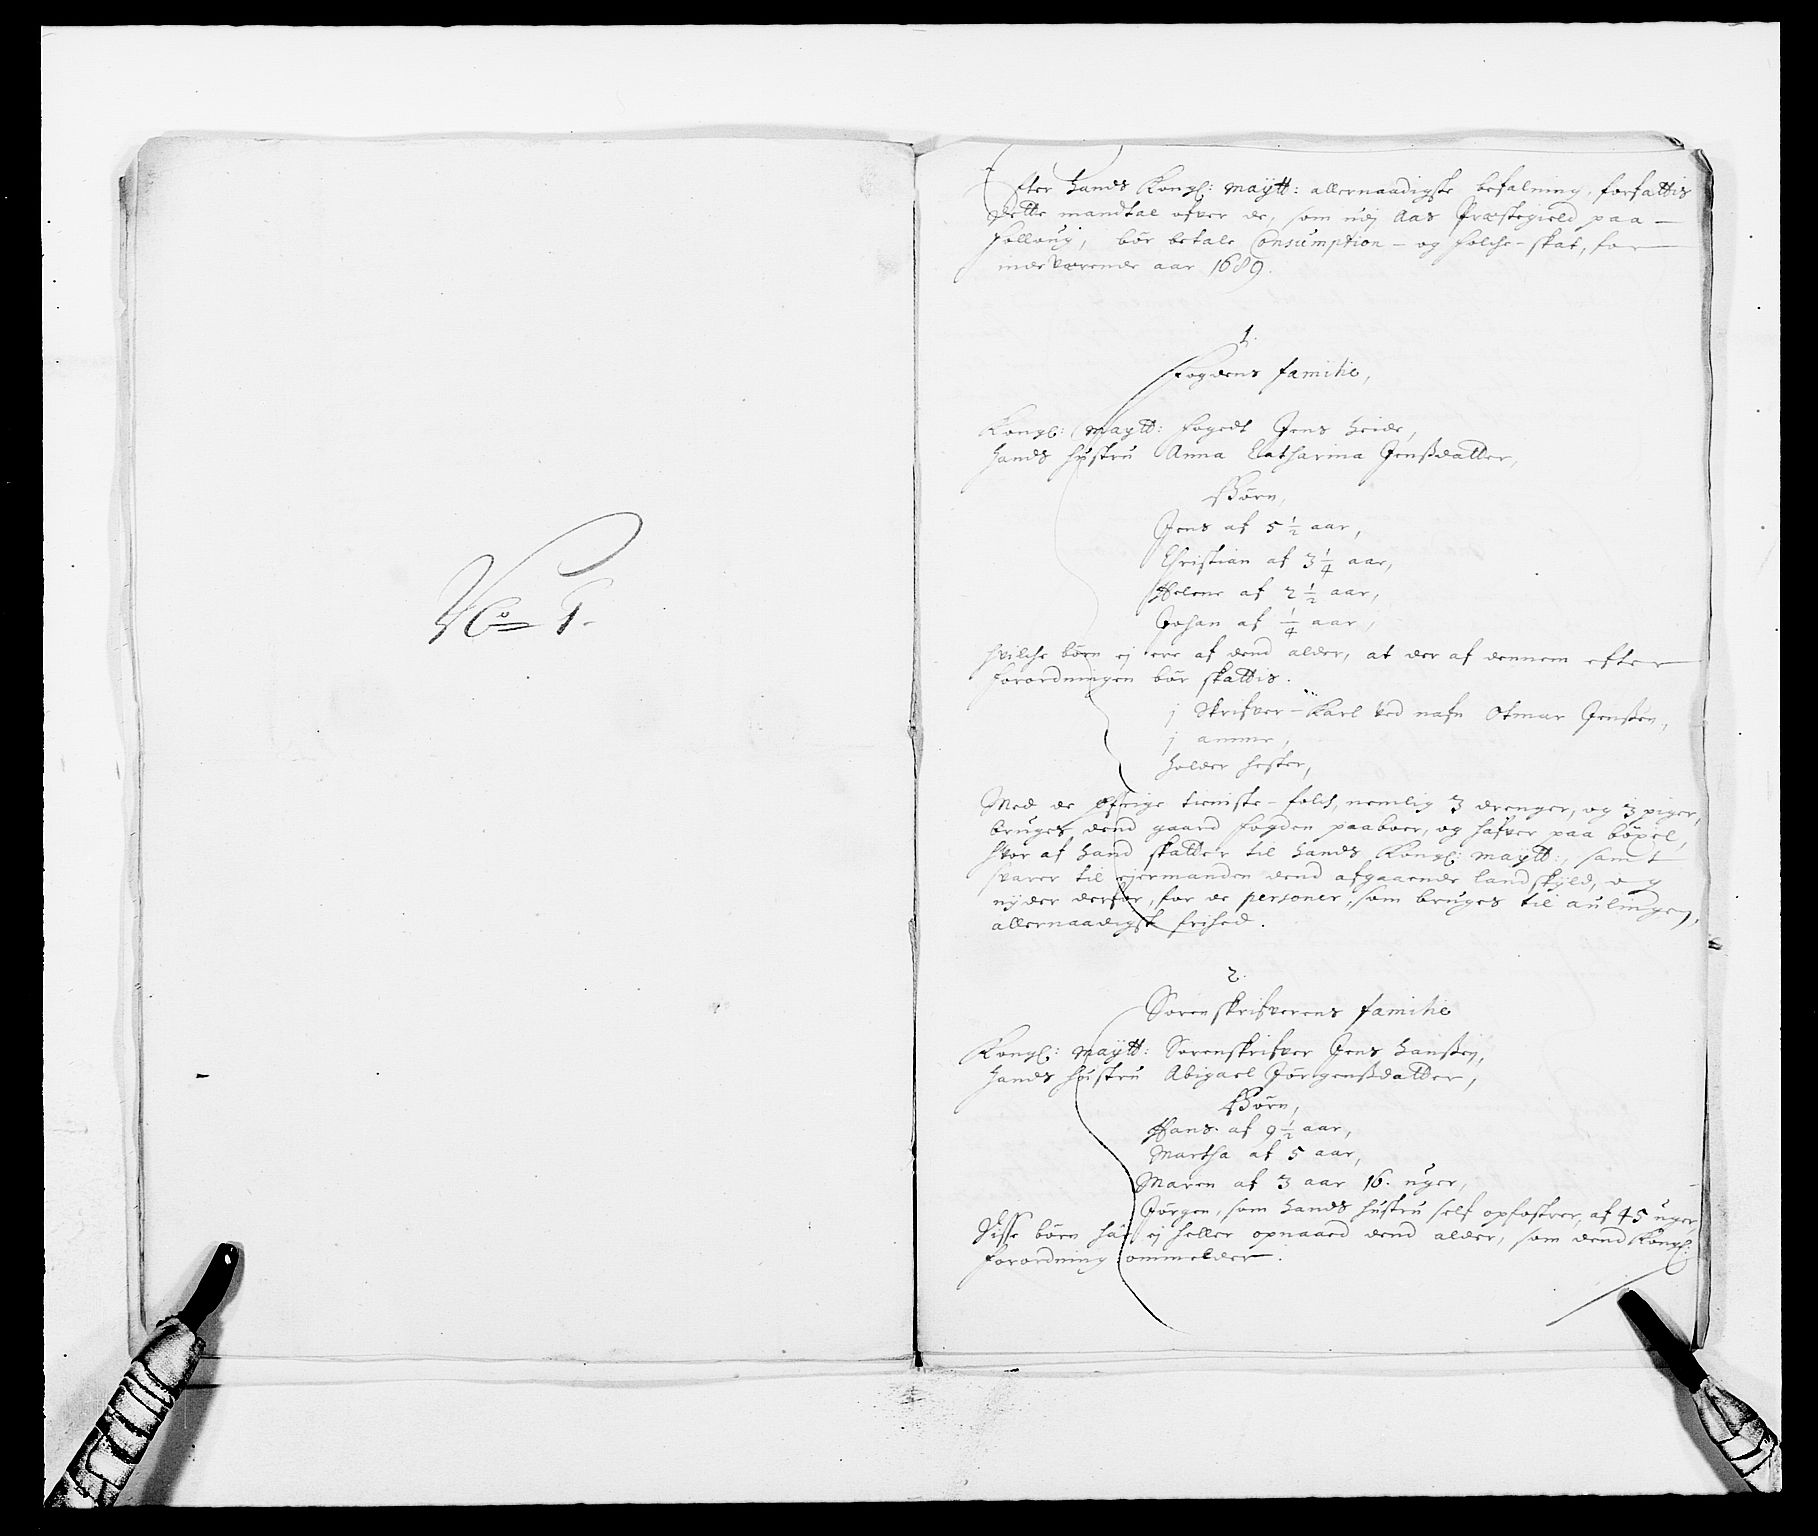 No 1.
Efter hands Kongl: maÿtt: allernaadigste befalning, forfattis
dette mandtal ofver de, som udj Aas Præstegield paa
follouj, bör betale Consumption- og folche-skat, for
indeværende aar 1689.
1.
Fogdens familie,
Kongl: maÿtt: fogedt Jens Heide,
hands hustru Anna Catharina Jenssdatter,
Börn,
Jens af 5 1/2 aar,
Christian af 3 1/4 aar,
Helene af 2 1/2 aar,
Johan af 1/4 aar,
hvilche börn ej ere af dend alder, at der af dennem efter
forordningen bör skattis.
j Skrifver-Karl ved nafn Otmar Jenssen,
j amme,
holder hester,
Med de öfrige tieniste-folch, nemlig 3 drenger, og 3 piger,
bruges dend gaard fogden paaboer, og hafver paa böxel,
hvor af hand skatter til hands Kongl: maÿtt:, samt
svarer til eiermanden dend afgaaende landskÿld, og
nÿder derfor, for de personer, som bruges til aulingen,
allernaadigst frihed.
2.
Sorenskrifverens familie
Kongl: maÿtt: Sorenskrifver Jens Hanssen,
hands hustru Abigael Jörgenssdatter,
Börn,
Hans af 9 1/2 aar,
Martha af 5 aar,
Maren af 3 aar 16. uger,
Jörgen, som hands hustru self opfostrer, af 45 uger
Disse börn har ej heller opnaaed dend alder, som dend Kongl:
forordning ommelder.